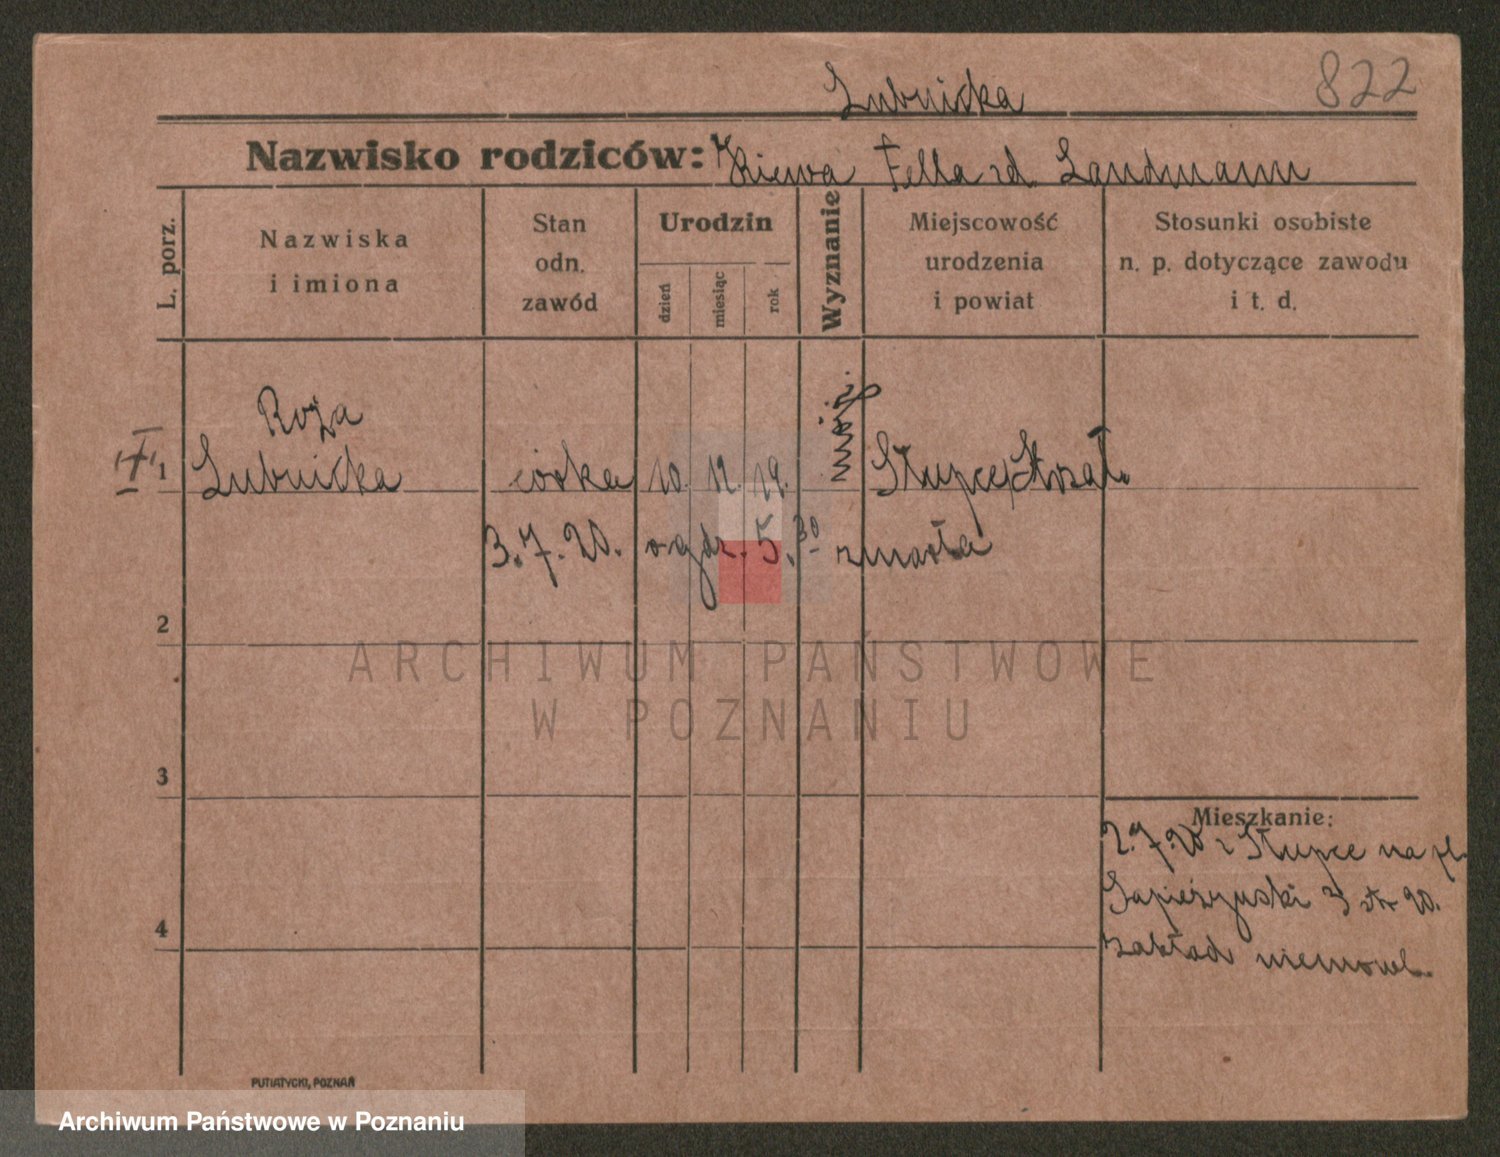 822
Lubnicka
Nazwisko rodziców: Fella zd. Landmann
L. porz.
Nazwiska
i imiona
Stan
odn.
zawód
Urodzin
dzień
miesiąc
rok
Wyznanie
Miejscowość
urodzenia
i powiat
Stosunki osobiste
n. p. dotyczące zawodu
i t. d.
Roża
1 Lubnicka córka 10. 12. 19. mojż. Słupce
3.7.20. o gdz. 5.30 zmarła
2
ARCHIWUM PAŃSTWOWE
W POZNANIU
3
4
Mieszkanie:
2.7.20 z Słupce na pl.
Sapieżynski 3 str 20.
zakład niemowl.
PUTIATYCKI, POZNAŃ
Archiwum Państwowe w Poznaniu